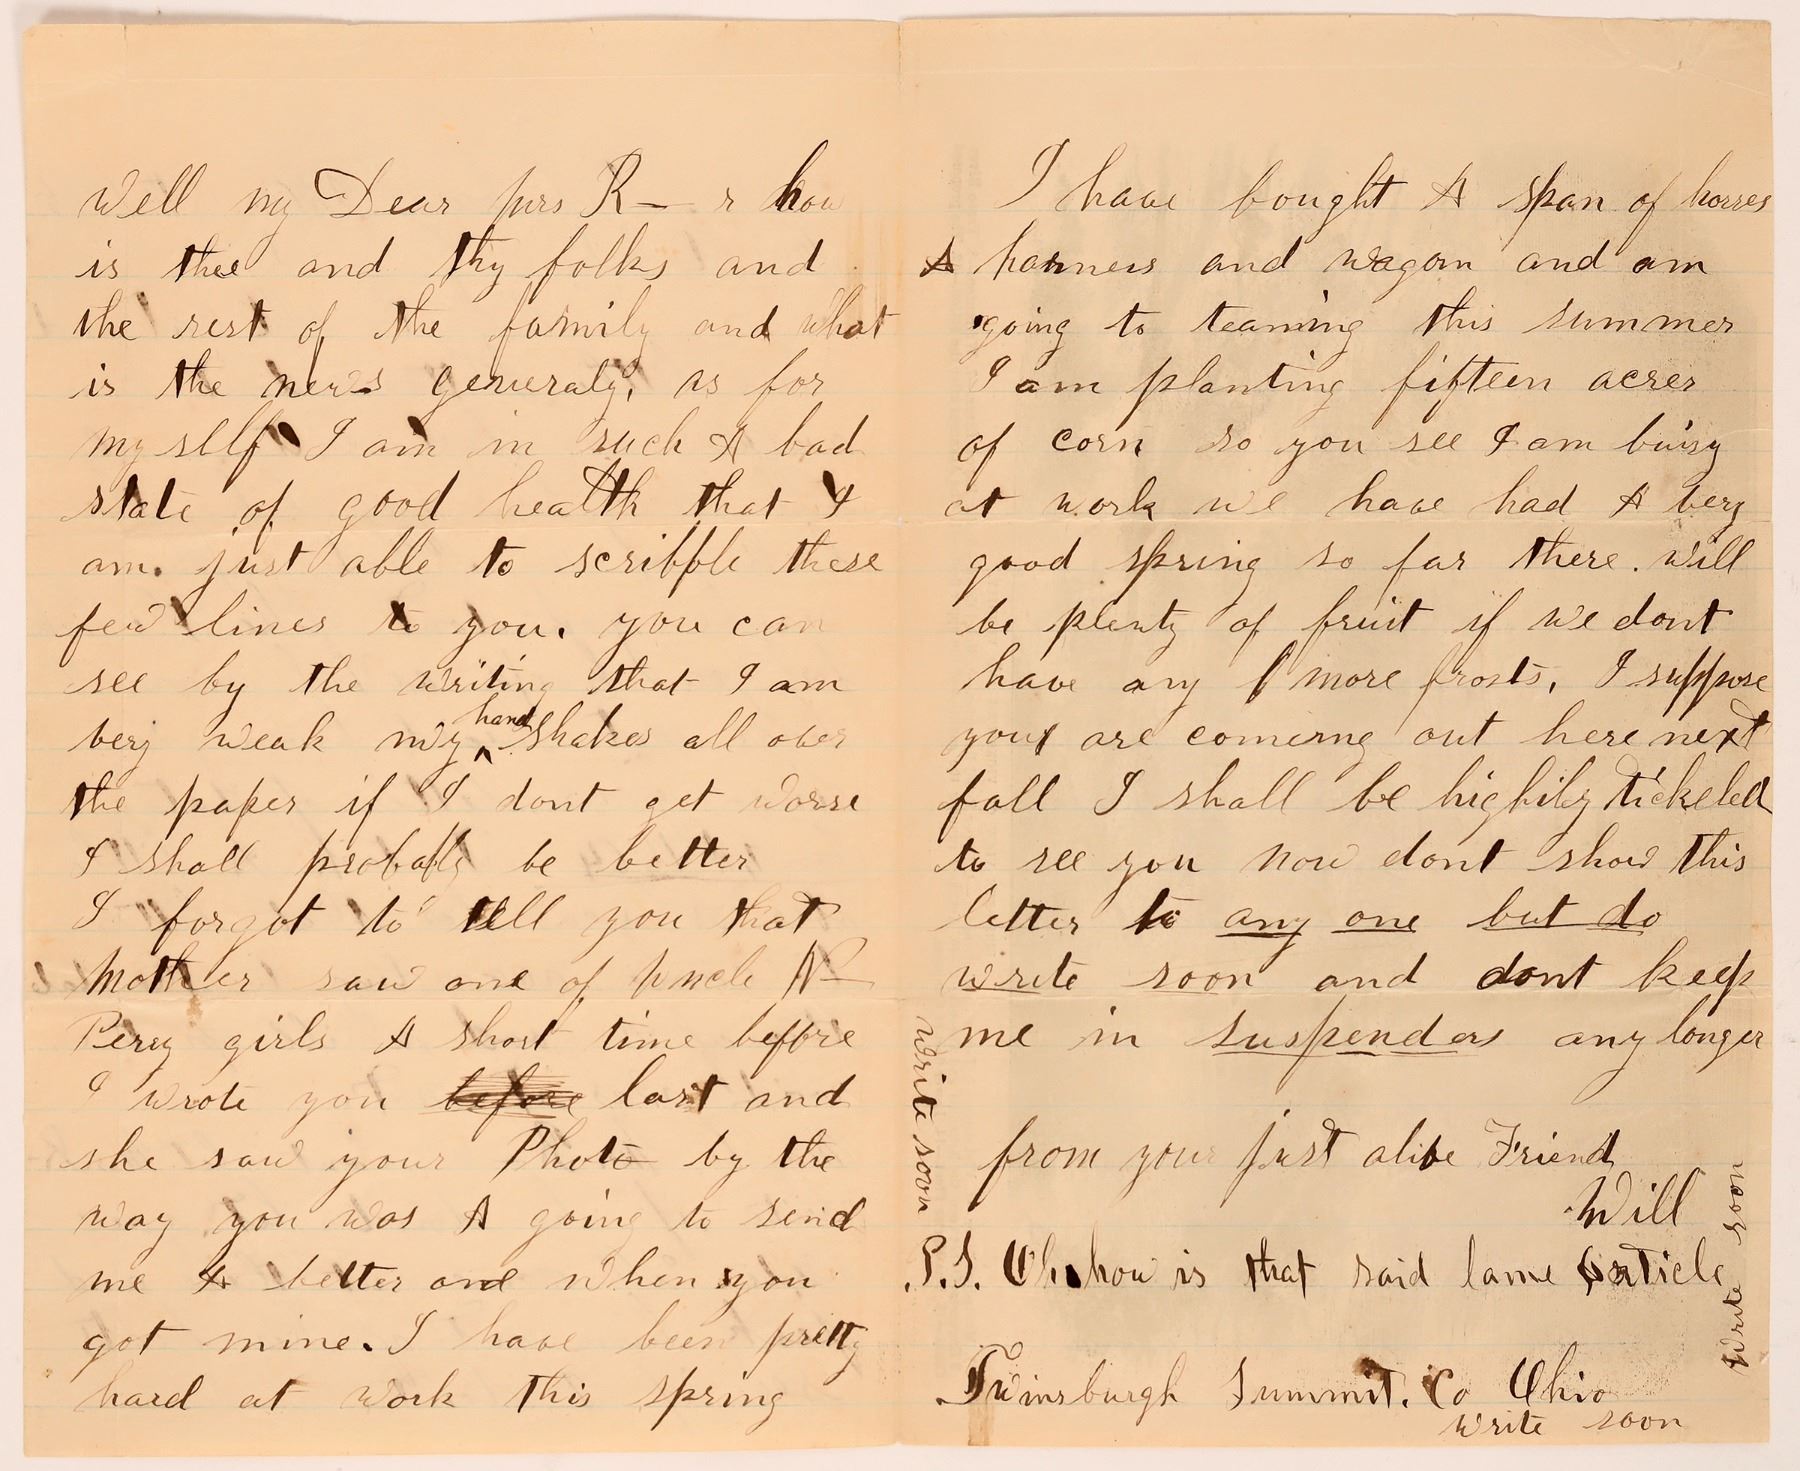 Well my Dear Mrs R— r how
is thee and thy folks and
the rest of the family and what
is the news generaly, as for
my self I am in such A bad
state of good health that I
am. just able to scribble these
few lines to you. you can
see by the writing that I am
very weak my hand shakes all over
the paper if I dont get worse
I shall probably be better
I forgot to tell you that
Mother saw one of Uncle N—
Perry girls A short time before
I wrote you before last and
she saw your Photo by the
way you was A going to send
me A better one when you
got mine. I have been pretty
hard at work this spring
I have bought A span of horses
A harness and wagon and am
going to teaming this summer
I am planting fifteen acres
of corn so you see I am buisy
at work we have had A very
good spring so far there. will
be plenty of fruit if we dont
have any more frosts, I suppose
you are comeing out here next
fall I shall be highily tickeled
to see you now dont show this
letter to any one but do
write soon and dont keep
me in suspenders any longer
from your just alive Friend
Will
P.S. Oh how is that said lame article
Twinsburgh Summit. Co Ohio
write soon
write soon
write soon